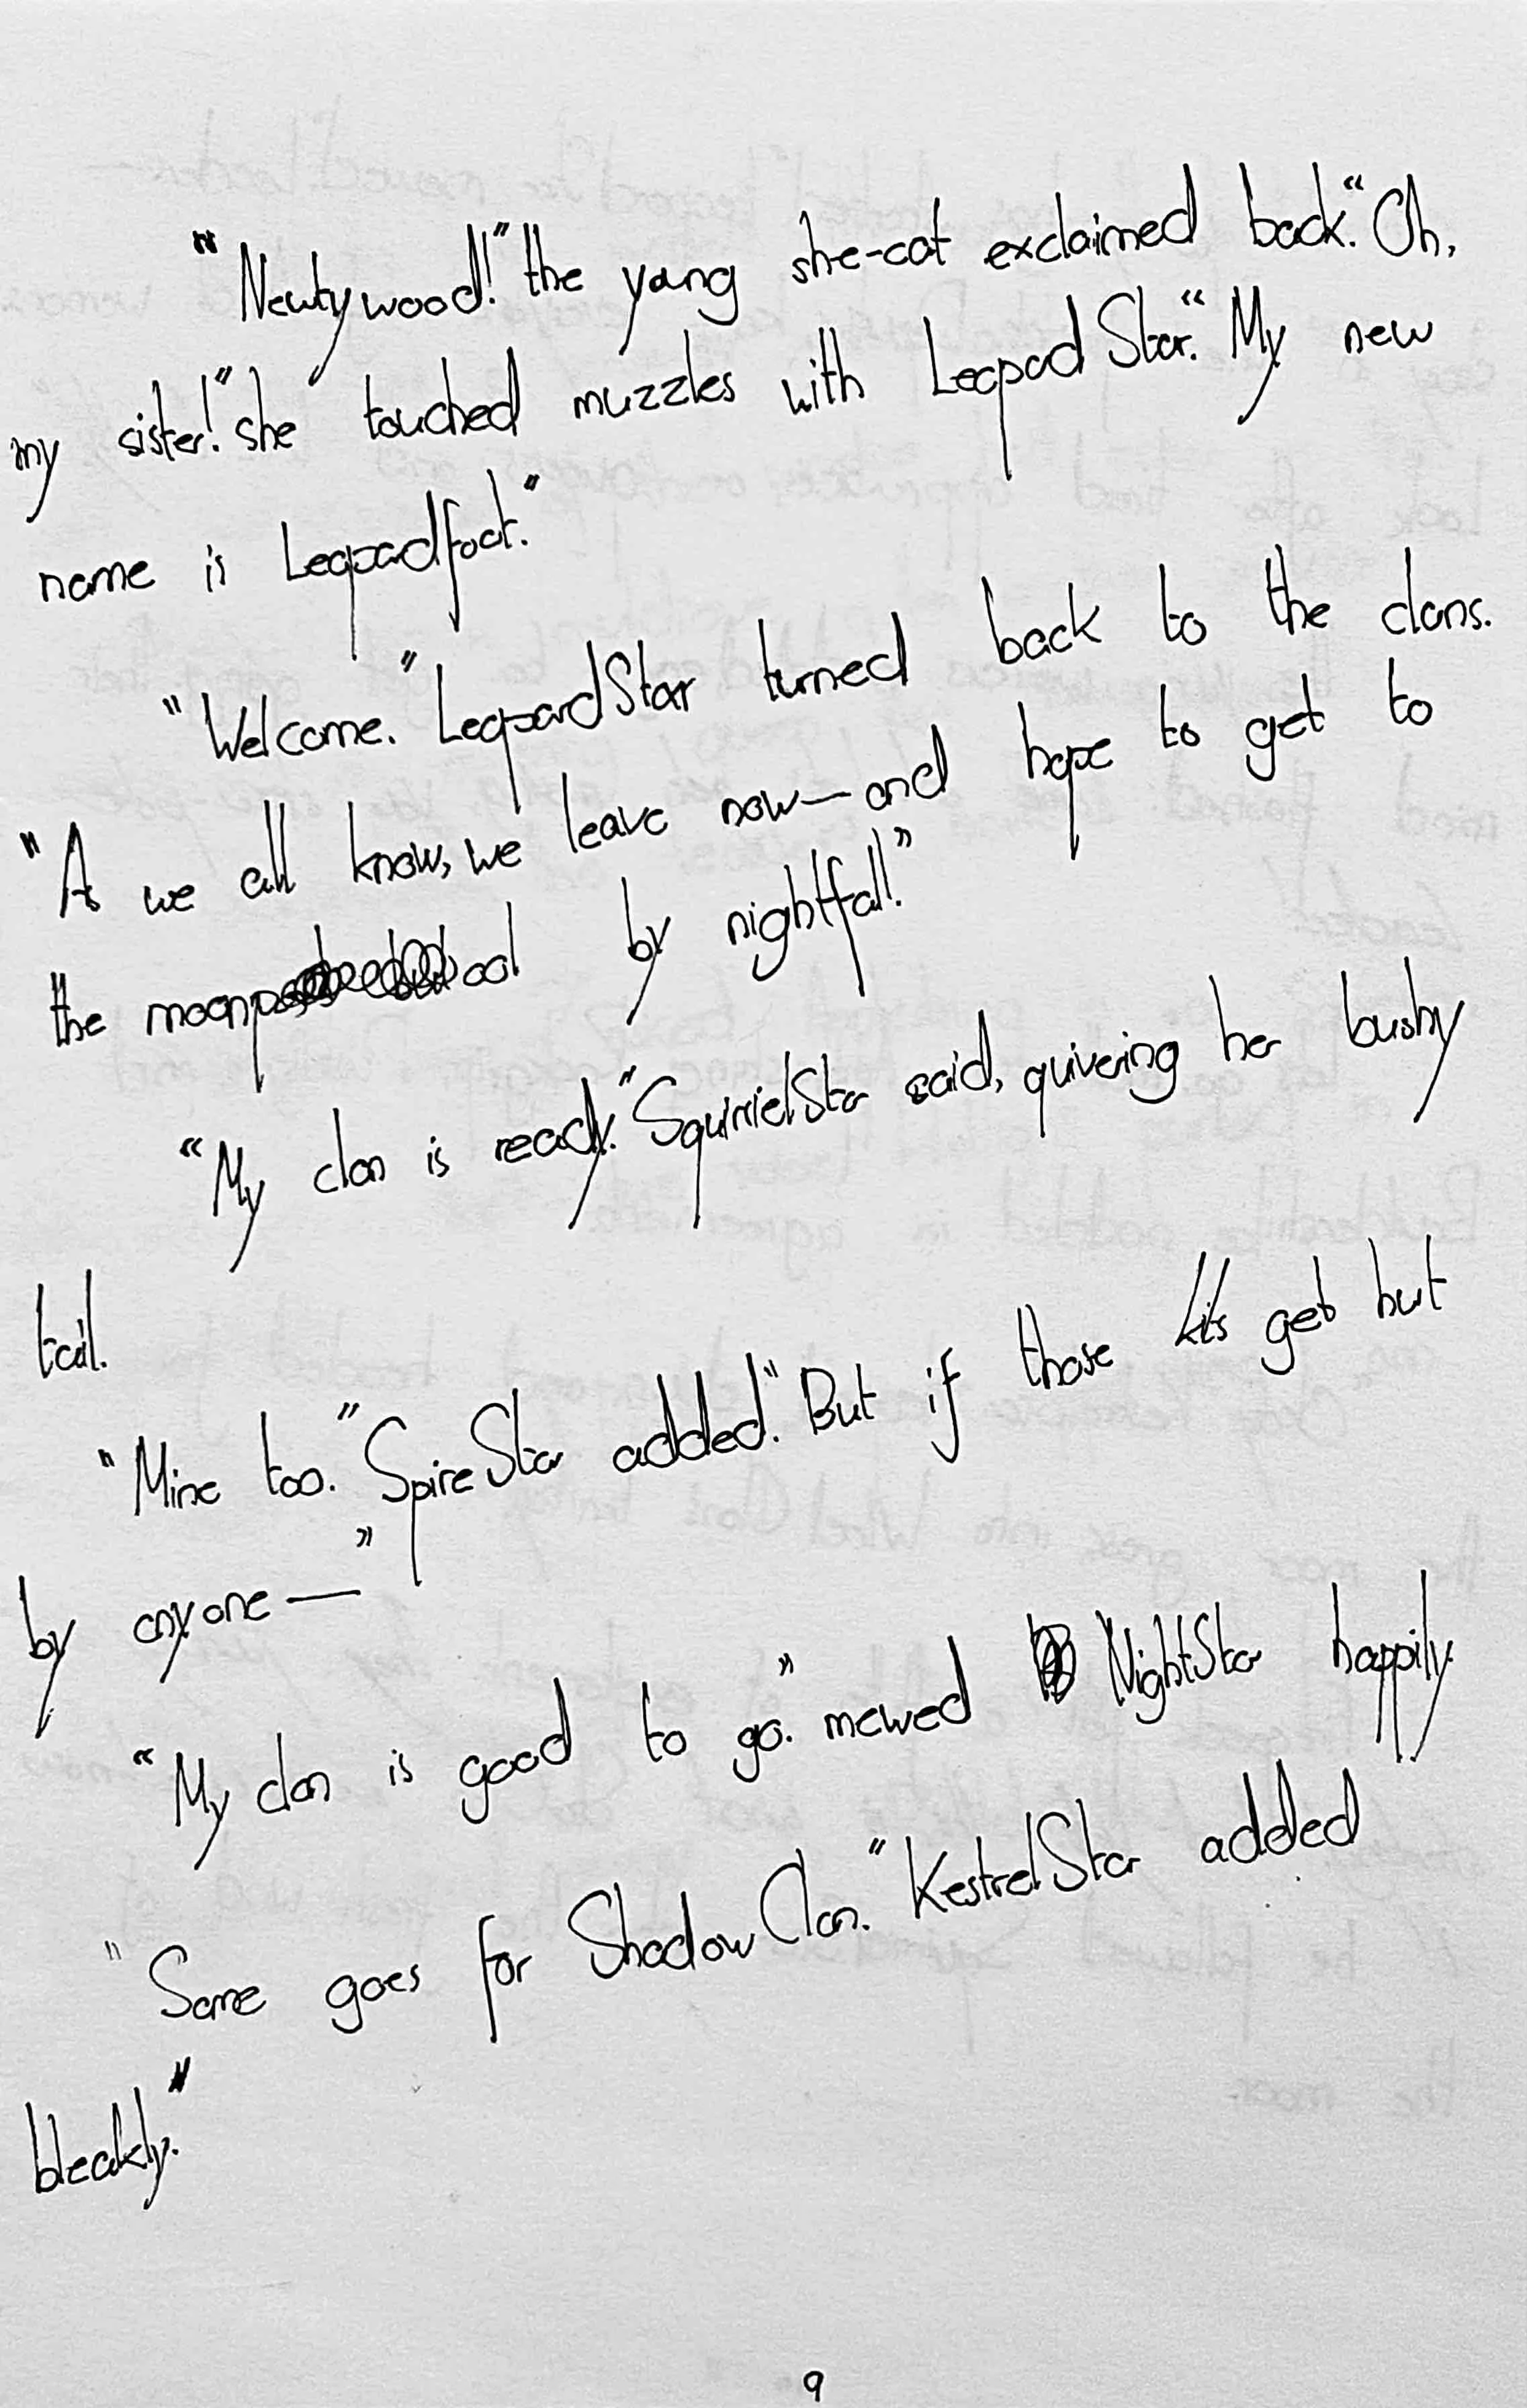 "Newtywood!" the young she-cat exclaimed back. "Oh,
my sister!" she touched muzzles with LeopadStar. "My new
name is Leopadfoot."
"Welcome." LeopardStar turned back to the clans.
"As we all know, we leave now—and hope to get to
the moonpool by nightfall."
"My clan is ready." SquirrielStar said, quivering her bushy
tail.
"Mine too." SpireStar added. "But if those kits get hurt
by anyone—"
"My clan is good to go." mewed NightStar happily.
"Same goes for ShadowClan." KestrelStar added
bleakly."
9